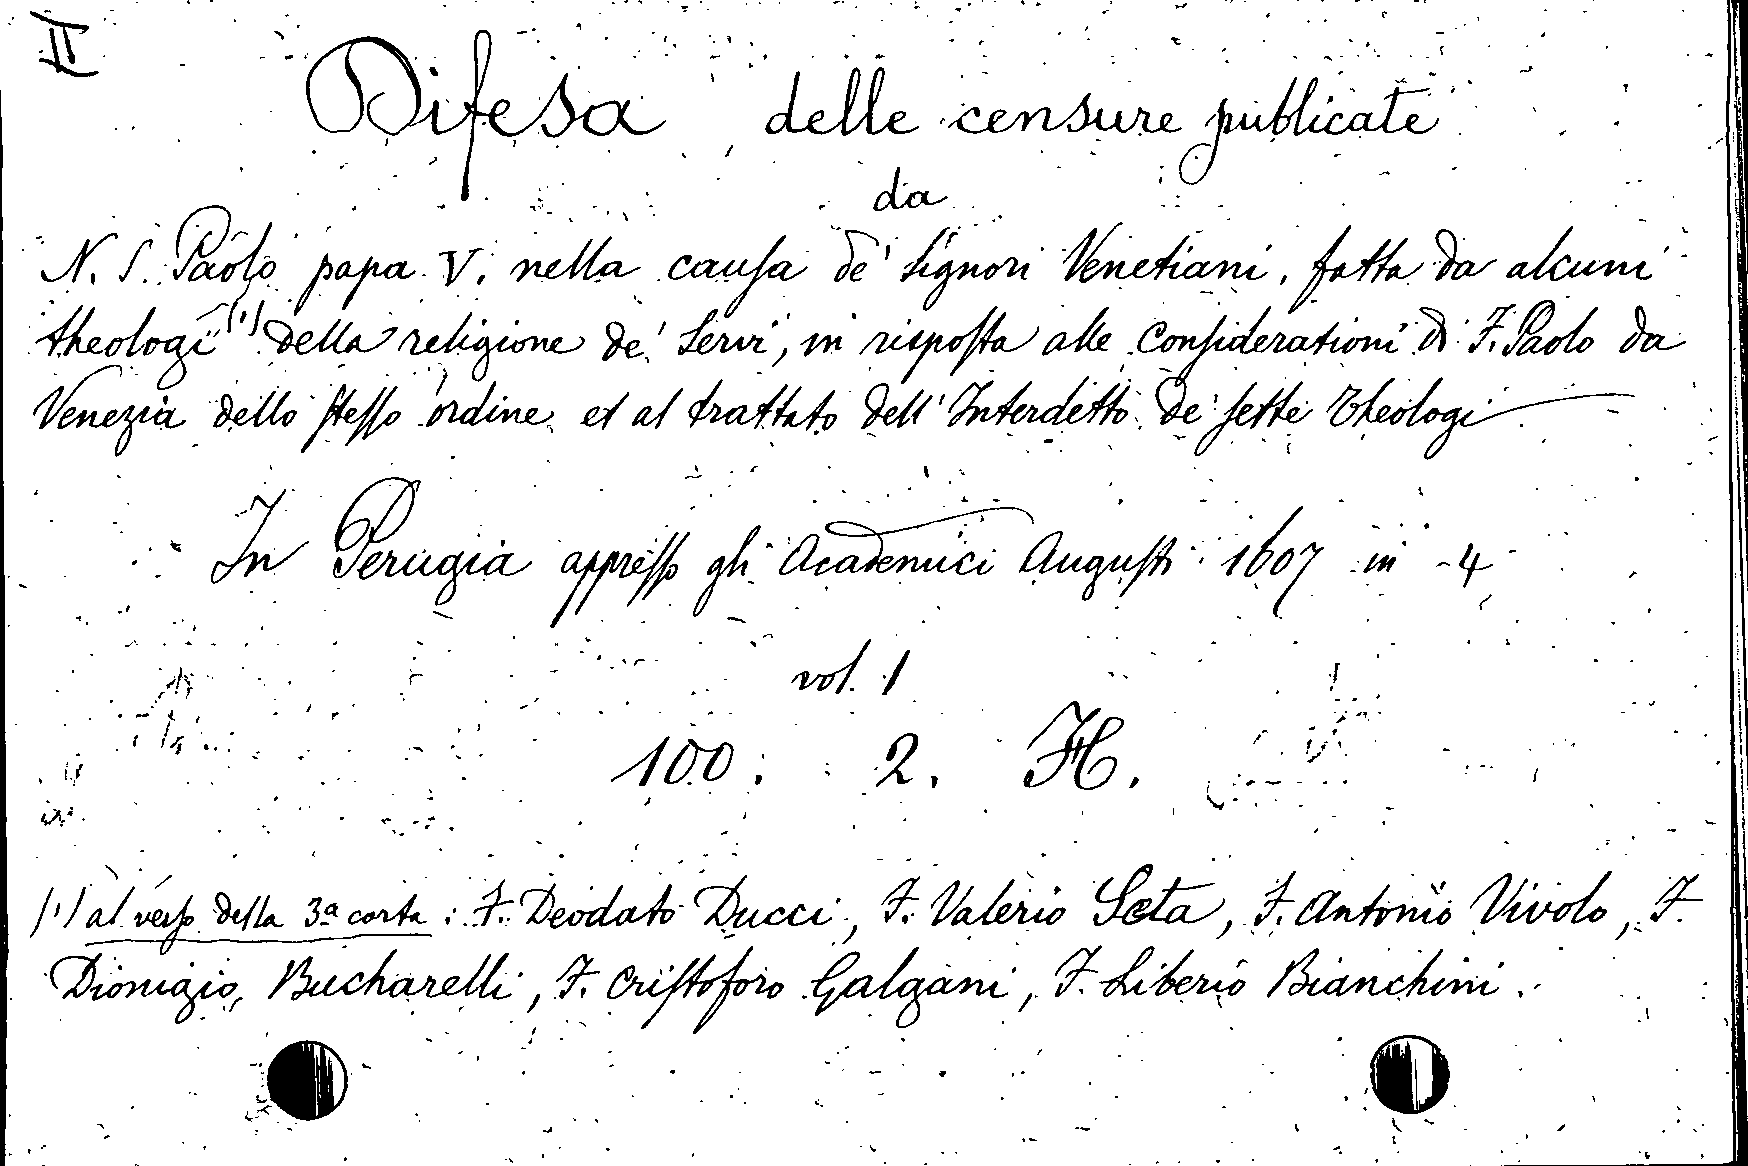 II
Difesa delle censure publicate
da
N. S. Paolo papa V. nella causa de' Signori Venetiani, fatta da alcuni
theologi (1) della religione de' Servi, in risposta alle considerationi di F. Paolo da
Venezia dello stesso ordine, et al trattato dell'Interdetto de' sette theologi
In Perugia appresso gli Academici Augusti 1607 in -4
vol. 1
100. 2. H.
(1) al verso della 3ª carta: F. Deodato Ducci, F. Valerio Seta, F. Antonio Vivolo, F.
Dionigio, Bucharelli, F. Cristoforo Galgani, F. Liberio Bianchini.